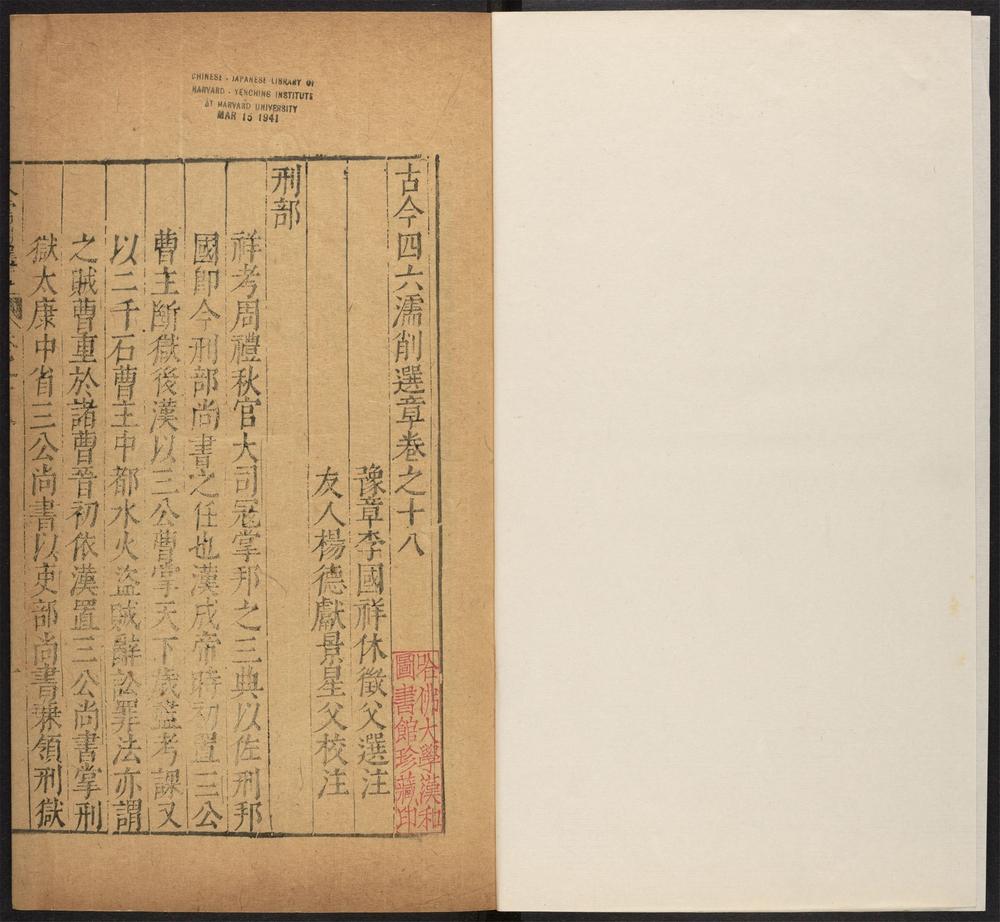 CHINESE - JAPANESE LIBRARY OF
HARVARD - YENCHING INSTITUTE
AT HARVARD UNIVERSITY
MAR 15 1941
古今四六濡削選章卷之十八
豫章李國祥休徵父選注
友人楊德獻景星父校注
刑部
祥考周禮秋官大司冦掌邦之三典以佐刑邦
國卽今刑部尚書之任也漢成帝時初置三公
曹主斷獄後漢以三公曹掌天下歲盡考課又
以二千石曹主中都水火盜賊辭訟罪法亦謂
之賊曹重於諸曹晉初依漢置三公尚書掌刑
獄太康中省三公尚書以吏部尚書兼領刑獄
哈佛大學漢和
圖書館珍藏印